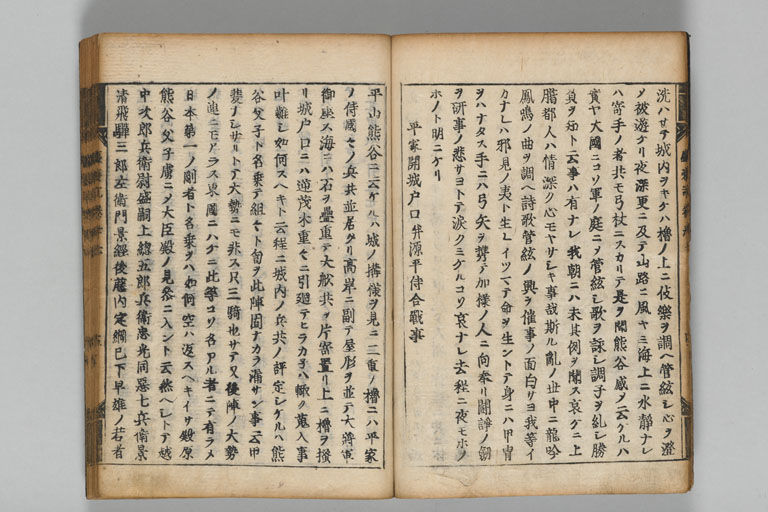 洗ハサテ城内ヲキケハ櫓ノ上ニ伎樂ヲ調ヘ管絃シ心ヲ澄
メ被遊ケリ夜深更ニ及テ山路ニ風ヤミ海上ニ水靜ナレ
ハ寄手ノ者共モ弓杖ニスカリテ是ヲ聞熊谷感メ云ケルハ
實ヤ大國ニコソ軍ノ庭ニノ管絃シ歌ヲ詠シ調子ヲ糺シ勝
負ヲ知ト云事ハ有ナレ我朝ニハ未其例ヲ聞ス哀ケニ上
臈都人ハ情深ク心モヤサシキ事哉斯ル亂ノ世中ニ龍吟
鳳鳴ノ曲ヲ調ヘ詩歌管絃ノ興ヲ催事ノ面白サヨ我等イ
カナレハ邪見ノ夷ト生レイツマテ命ヲ生ントテ身ニハ甲冑
ヲハナタス手ニハ弓矢ヲ携テ加樣ノ人ニ向奉リ鬪諍ノ劔
ヲ研事ノ悲サヨトテ淚クミケルコソ哀ナレ去程ニ夜モホノ
ホノト明ニケリ
平家開城戸口幷源平侍合戰事
平山熊谷ニ云ケルハ城ノ搆樣ヲ見ニ二重ノ櫓ニハ平家
ノ侍國々ノ兵共並居タリ高岸ニ副テ屋形ヲ並テ大將軍
御座ス海ニハ石ヲ疊重テ大舩共ヲ片寄置リ上ニ櫓ヲ搔
リ城戸口ニハ逆茂木重々ニ引廻テヒラカ子ハ輙ク蒐入事
叶難シ如何スヘキト云程ニ城内ノ兵共ノ評定シケルハ熊
谷父子ト名乗テ組ヤト匐ヲ此陣固ナカラ漏サン事云甲
斐ナシサリトテ大勢ニモ非ス只三騎也サテ又後陣ノ大勢
ノ連ニモアラス東國ニハケニ此等コソ名アル者ニテ有ラメ
日本第一ノ剛者ト名乗ヲハ如何空ハ返スヘキイサ殿原
熊谷父子虜ニメ大臣殿ノ見參ニ入ント云然ヘシトテ越
中次郎兵衛尉盛嗣上總五郎兵衛忠光同惡七兵衛景
淸飛驒三郎左衛門景經後藤内定綱已下早雄ノ若者